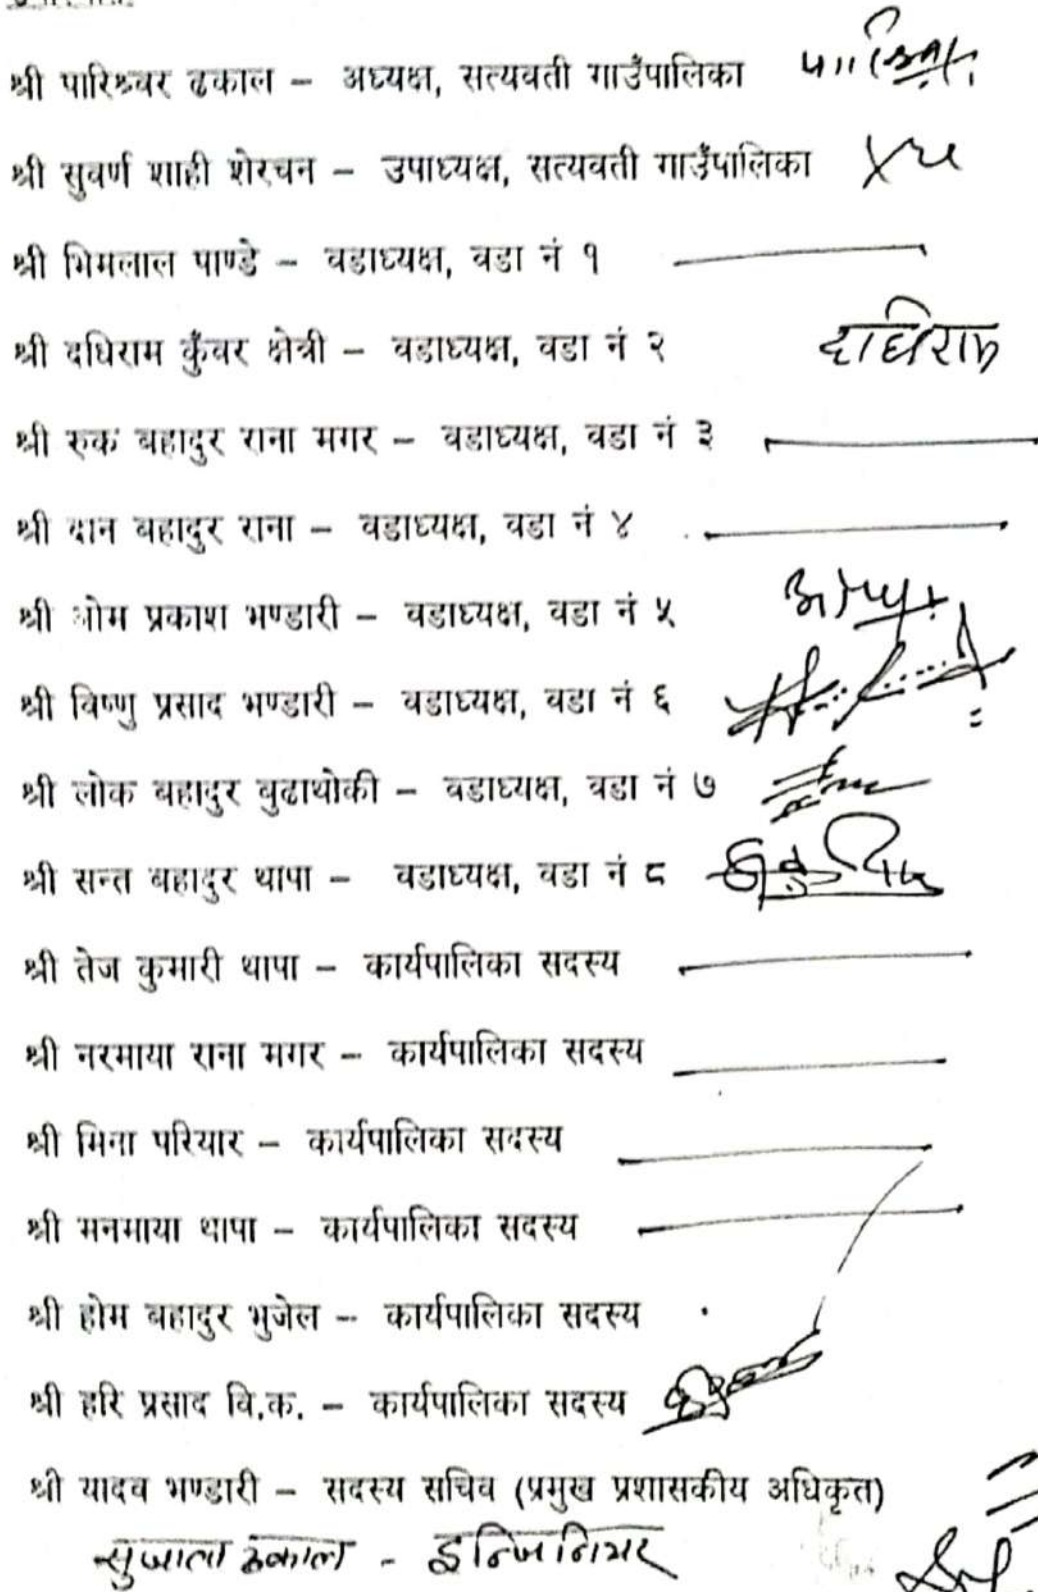 श्री पारिश्वर ढकाल – अध्यक्ष, सत्यवती गाउँपालिका
श्री सुवर्ण शाही शेरचन – उपाध्यक्ष, सत्यवती गाउँपालिका
श्री भिमलाल पाण्डे – वडाध्यक्ष, वडा नं १
श्री दधिराम कुँवर क्षेत्री – वडाध्यक्ष, वडा नं २ दधिराम
श्री रुक बहादुर राना मगर – वडाध्यक्ष, वडा नं ३
श्री दान बहादुर राना – वडाध्यक्ष, वडा नं ४
श्री ओम प्रकाश भण्डारी – वडाध्यक्ष, वडा नं ५
श्री विष्णु प्रसाद भण्डारी – वडाध्यक्ष, वडा नं ६
श्री लोक बहादुर बुढाथोकी – वडाध्यक्ष, वडा नं ७
श्री सन्त बहादुर थापा – वडाध्यक्ष, वडा नं ८
श्री तेज कुमारी थापा – कार्यपालिका सदस्य
श्री नरमाया राना मगर – कार्यपालिका सदस्य
श्री मिना परियार – कार्यपालिका सदस्य
श्री मनमाया थापा – कार्यपालिका सदस्य
श्री होम बहादुर भुजेल – कार्यपालिका सदस्य
श्री हरि प्रसाद वि.क. – कार्यपालिका सदस्य
श्री यादव भण्डारी – सदस्य सचिव (प्रमुख प्रशासकीय अधिकृत)
सुजाता ढकाल - इन्जिनियर